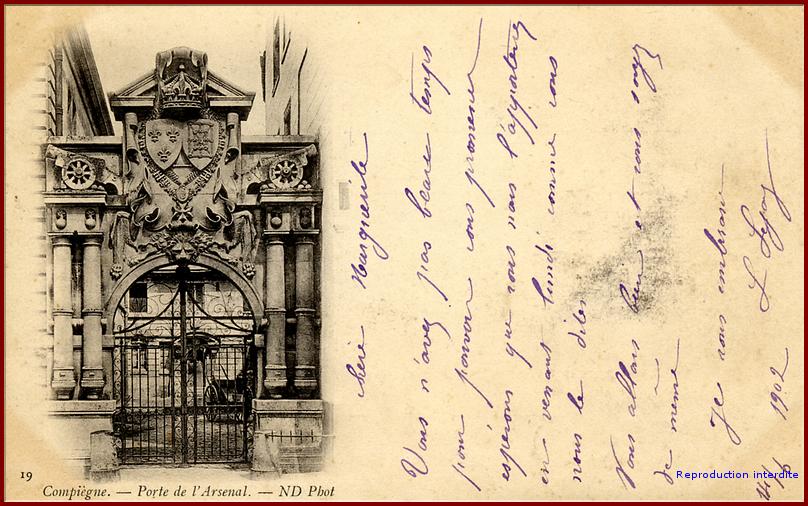 chère Marguerite
Vous n'avez pas beau temps
pour pouvoir vous promener
espérons que vous nous l'apporterez
en venant lundi comme vous
nous le dites
Nous allons bien et vous soyez
de même
Je vous embrasse
1902
19
Compiègne. — Porte de l'Arsenal. — ND Phot
Reproduction interdite